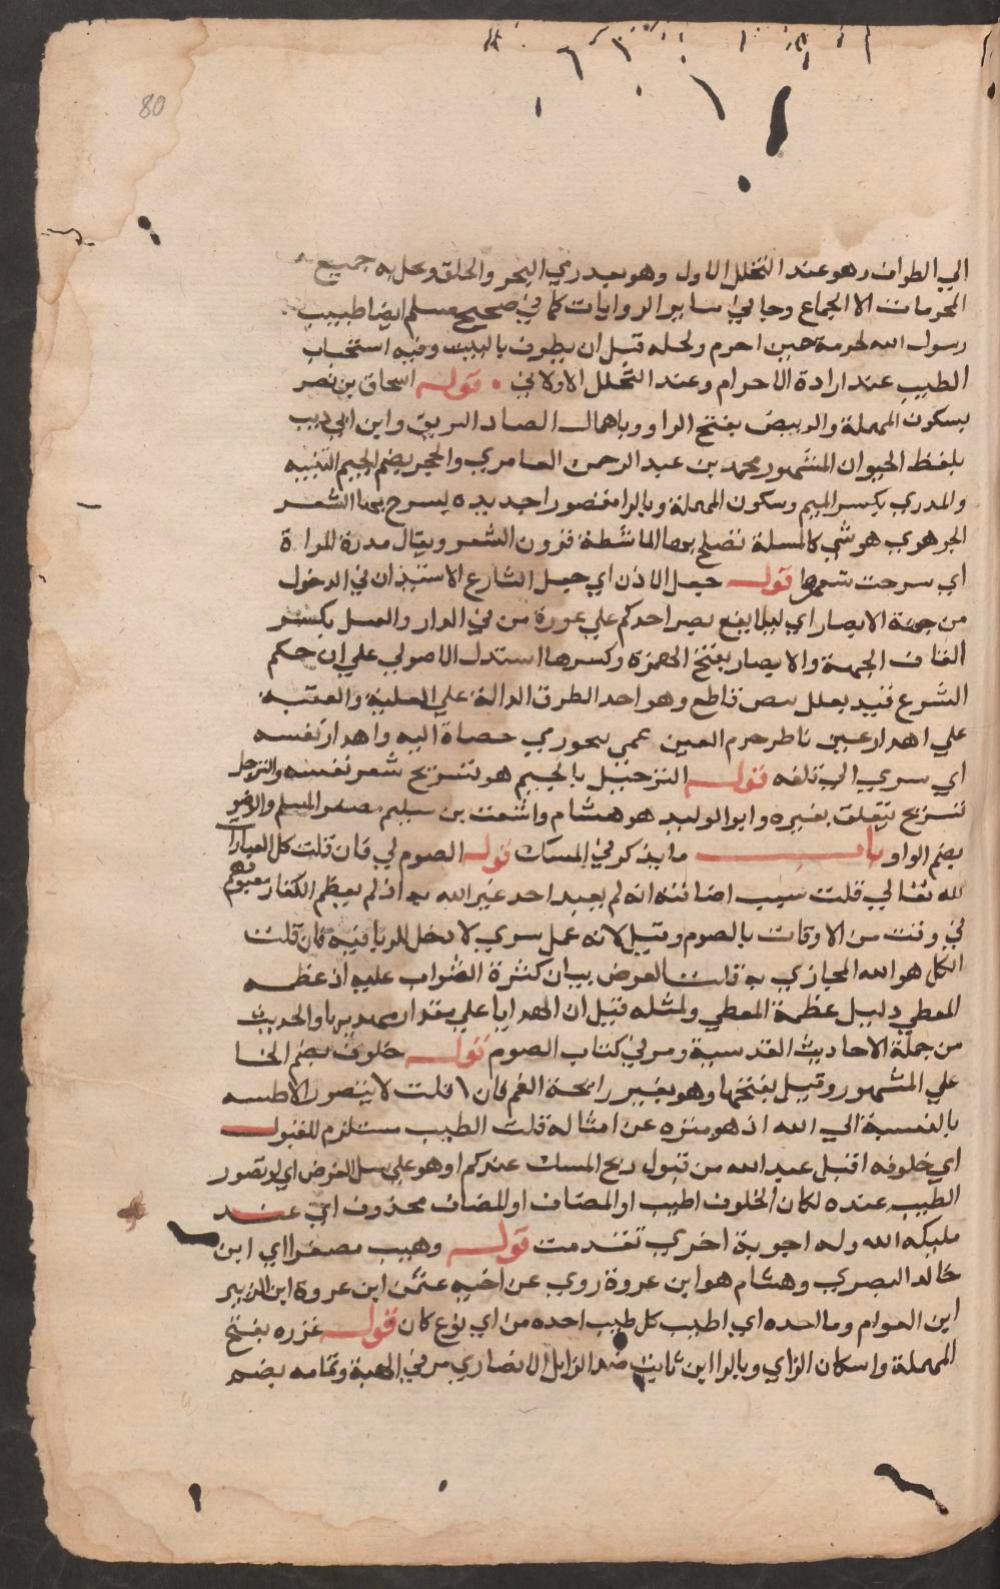 80
الي الطواف وهو عند التحلل الاول وهو بعد رمي النحر والحلق وحل به جميع
المحرمات الا الجماع وجا في ساير الروايات كما في صحيح مسلم ايضا طيبت
رسول الله لحرمه حين احرم ولحله قبل ان يطوف بالبيت وفيه استحباب
الطيب عند ارادة الاحرام وعند التحلل الاولاني . قوله اسحاق بن نصر
بسكون المهملة والوبيص بفتح الواو وباهمال الصاد البريق وابن ابي ذيب
بلفظ الحيوان المشهور محمد بن عبد الرحمن العامري والحجر بضم الجيم الثنيه
والمدري بكسر الميم وسكون المهملة وبالرا مقصور احديده يسرح بها الشعر
الجوهري هو شي كالمسلة تصلح بها الماشطة قرون الشعر ويقال مدرة المراة
اي سرحت شعرها قوله جعل الاذن اي جعل الشارع الاستيذان في الدخول
من جهة الابصار اي ليلا يقع بصر احدكم علي عورة من في الدار والعسل بكسر
القاف الجهة والابصار بفتح الهمزة وكسرها استدل الاصولي علي ان حكم
الشرع قد يعلل بنص قاطع وهو احد الطرق الدالة علي العلية والفقيه
علي اهدار عين ناظر حرم الغير عمي بنحو رمي حصاة اليه واهدار نفسه
اي سري الي تلفه قوله الترجيل بالجيم هو تسريح شعر نفسه والترجل
تسريح يتعلق بغيره وابو الوليد هو هشام واشعث بن سليم مصغر المسلم والوضو
بضم الواو باب ما يذكر في المسك قوله الصوم لي فان قلت كل العبادات
لله تعالي قلت سبب اضافته انه لم يعبد احد غير الله به اذ لم يعظم الكفار معبودهم
في وقت من الاوقات بالصوم وقيل لانه عمل سري لا دخل للريا فيه فان قلت
الكل هو الله المجازي به قلت الغرض بيان كثرة الثواب عليه اذ عظمه
المعطي دليل عظمة المعطي ولمثله قيل ان الهدايا علي مقدار مهديها والحديث
من جملة الاحاديث القدسية ومر في كتاب الصوم قوله خلوف بضم الخا
علي المشهور وقيل بفتحها وهو تغيير رايحة الفم فان قلت لا يتصور الاطيبه
بالنسبة الي الله اذ هو منزه عن امثاله قلت الطيب مستلزم للقبول
اي خلوفه اقبل عند الله من قبول ريح المسك عندكم او هو علي سبيل الفرض اي لو تصور
الطيب عنده لكان الخلوف اطيب او المضاف او المضاف محذوف اي عند
مليكه الله وله اجوبة اخري تقدمت قوله وهيب مصغرا اي ابن
خالد البصري وهشام هو ابن عروة روي عن اخيه عثمن ابن عروة ابن الزبير
ابن العوام وما اجده اي اطيب كل طيب اجده من اي نوع كان قوله عزره بفتح
المهملة واسكان الزاي وبالرا ابن ثابت ضد الزايل الانصاري مر في الهبة وثمامه بضم